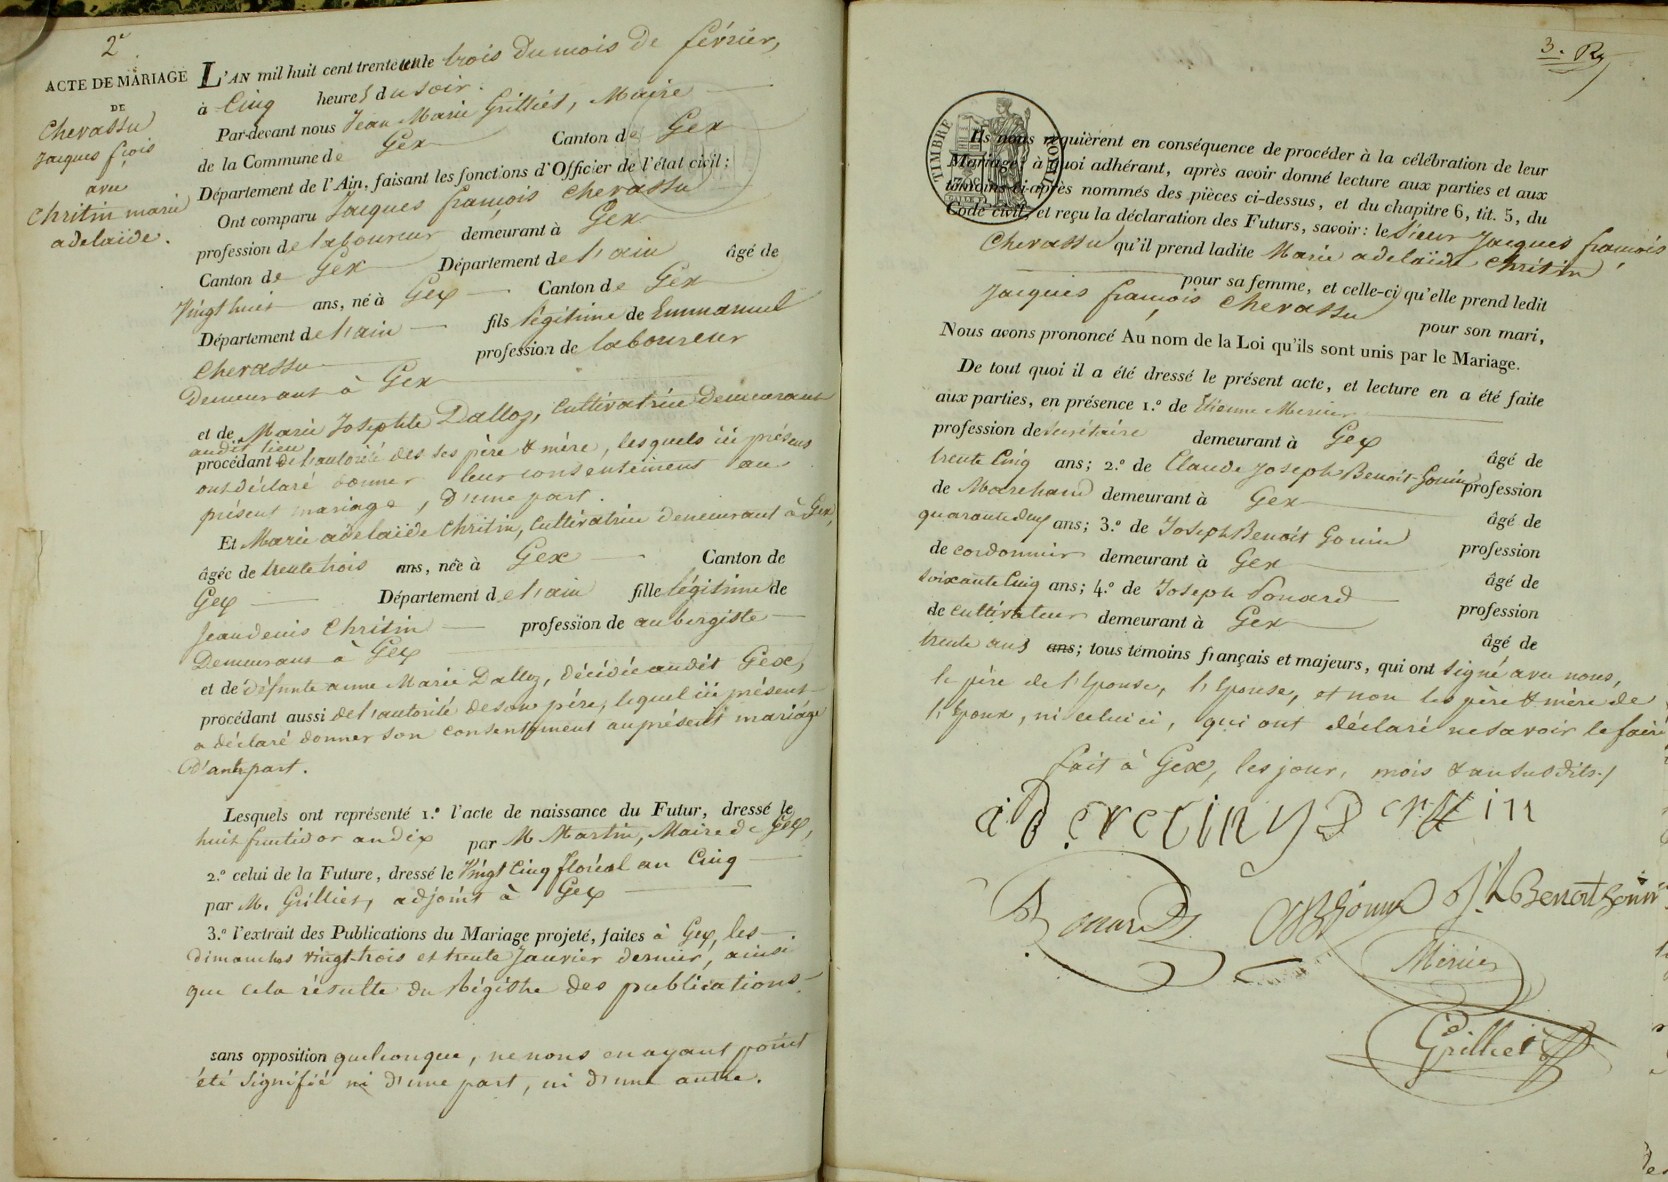 2e
ACTE DE MARIAGE
DE
Chevassu
Jacques fçois
avec
Chritin marie
adelaïde.
L'AN mil huit cent trente un le trois du mois de février,
à Cinq heures du soir.
Par-devant nous Jean Marie Grilliet, Maire
de la Commune de Gex Canton de Gex
Département de l'Ain, faisant les fonctions d'Officier de l'état civil;
Ont comparu Jacques françois Chevassu
profession de laboureur demeurant à Gex
Canton de Gex Département de l'ain âgé de
Vingt huit ans, né à Gex Canton de Gex
Département de l'ain fils légitime de Emmanuel
Chevassu profession de laboureur
Demeurant à Gex
et de Marie Josephte Dalloz, Cultivatrice Demeurant
audit lieu
procédant de l'autorité des ses père & mère, lesquels ici présens
ont déclaré donner leur consentement au
présent mariage, d'une part.
Et Marie adelaïde Chritin, Cultivatrice demeurant à Gex,
âgée de trente trois ans, née à Gex Canton de
Gex Département de l'ain fille légitime de
Jean denis Chritin profession de aubergiste
Demeurant à Gex
et de défunte anne Marie Dalloz, décédée audit Gex,
procédant aussi de l'autorité de son père, lequel ici présent
a déclaré donner son consentement au présent mariage
D'autre part.
Lesquels ont représenté 1.º l'acte de naissance du Futur, dressé le
huit fructidor an dix par M. Martin, Maire de Gex,
2.º celui de la Future, dressé le Vingt Cinq floréal an Cinq
par M. Grilliet, adjoint à Gex
3.º l'extrait des Publications du Mariage projeté, faites à Gex, les
dimanches vingt-trois et trente Janvier dernier, ainsi
que cela résulte du Régistre des publications
sans opposition quelconque, ne nous en ayant point
été signifié ni d'une part, ni d'une autre.
3.
TIMBRE ROYAL
Ils nous requièrent en conséquence de procéder à la célébration de leur
Mariage; à quoi adhérant, après avoir donné lecture aux parties et aux
témoins ci-après nommés des pièces ci-dessus, et du chapitre 6, tit. 5, du
Code civil, et reçu la déclaration des Futurs, savoir: le Sieur Jacques françois
Chevassu qu'il prend ladite Marie adelaïde Chritin
pour sa femme, et celle-ci qu'elle prend ledit
Jacques françois Chevassu pour son mari,
Nous avons prononcé Au nom de la Loi qu'ils sont unis par le Mariage.
De tout quoi il a été dressé le présent acte, et lecture en a été faite
aux parties, en présence 1.º de Etienne Mercier
profession de secrétaire demeurant à Gex âgé de
trente Cinq ans; 2.º de Claude Joseph Benoit-Gonin profession
de Marchand demeurant à Gex âgé de
quarante deux ans; 3.º de Joseph Benoit Gonin profession
de cordonnier demeurant à Gex âgé de
soixante Cinq ans; 4.º de Joseph Ponard profession
de cultivateur demeurant à Gex âgé de
trente ans ans; tous témoins français et majeurs, qui ont signé avec nous,
le père de l'Epouse, l'Epouse, et non les père & mère de
l'Epoux, ni celui ci, qui ont déclaré ne savoir le faire
fait à Gex, les jour, mois & an susdits./
Ponard Benoit Gonin
Mercier
Grilliet